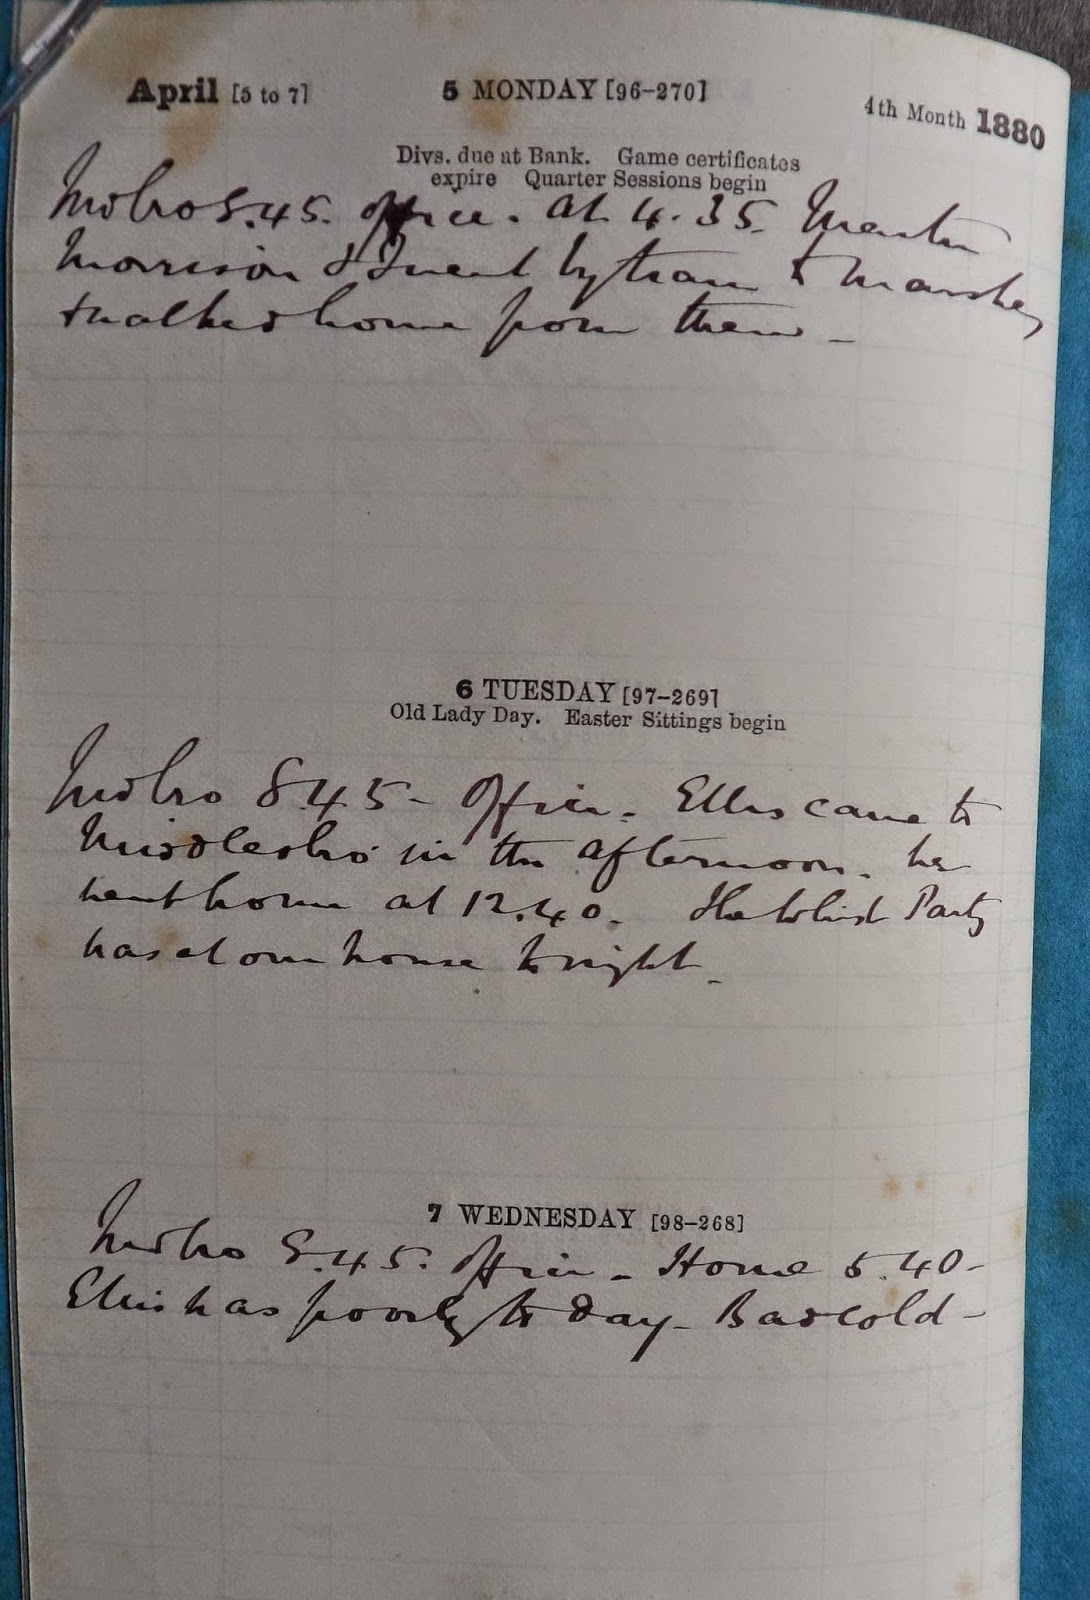 April [5 to 7] 5 MONDAY [96-270] 4th Month 1880
Divs. due at Bank. Game certificates
expire Quarter Sessions begin
Mdbro 8.45. Office. At 4.35. Martin
Morrison & I went by tram to Marske
& walked home from there -
6 TUESDAY [97-269]
Old Lady Day. Easter Sittings begin
Mdbro 8.45- Office. Ellis came to
Middlesbro' in the afternoon. we
went home at 12.40. The Whist Party
was at our house to night -
7 WEDNESDAY [98-268]
Mdbro 8.45. Office - Home 5.40-
Ellis was poorly to day - Bad cold -